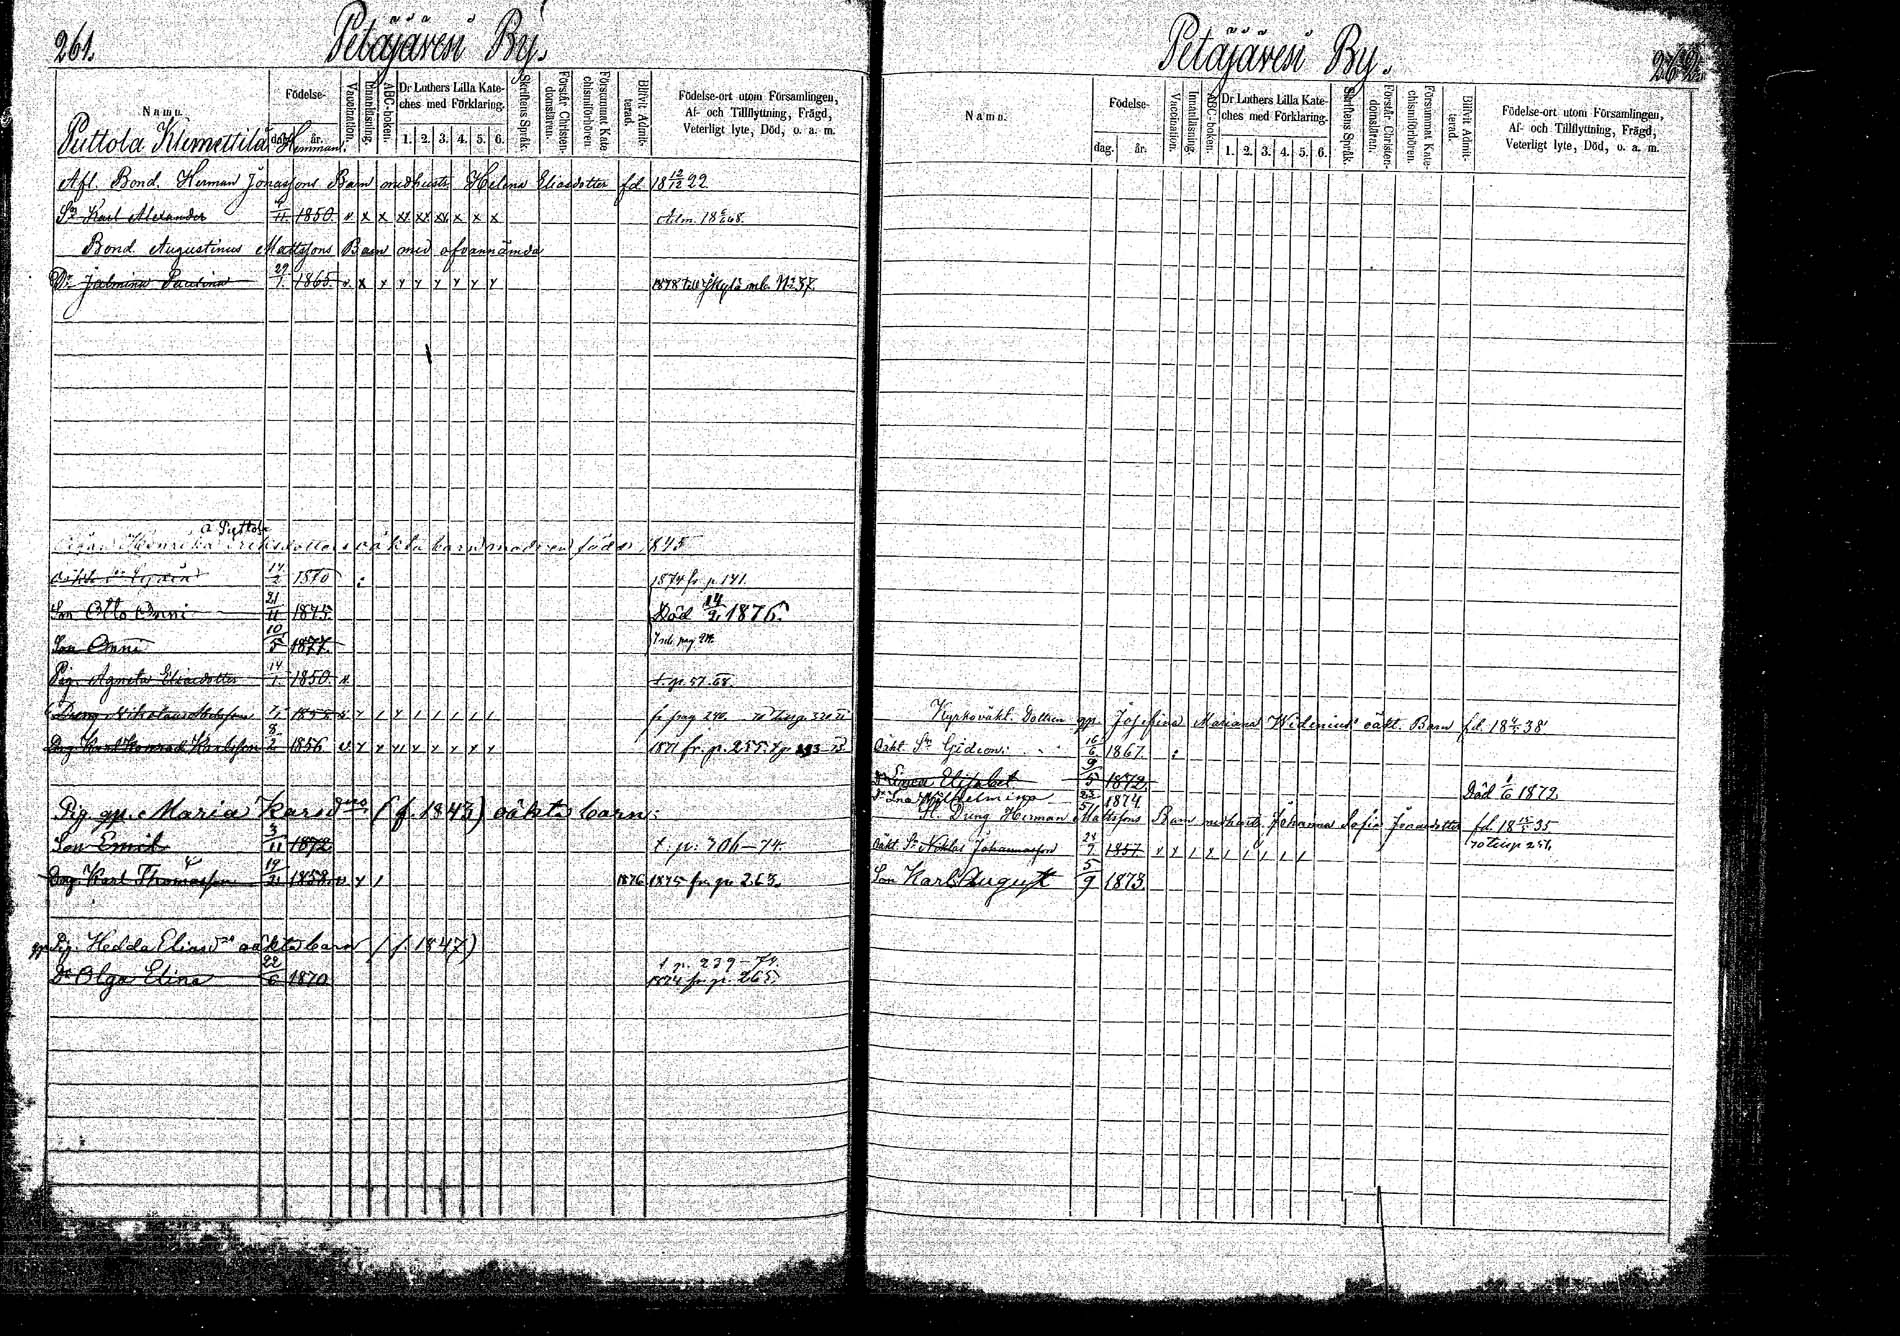 261.
Petäjävesi By.
Namn.
Födelse-
dag. år.
Vaccination.
Innanläsning.
ABC-boken.
Dr Luthers Lilla Kate-
ches med Förklaring.
1. 2. 3. 4. 5. 6.
Skriftens Språk.
Förstår Christen-
domsläran.
Försummat Kate-
chismiförhören.
Blifvit Admit-
terad.
Födelse-ort utom Församlingen,
Af- och Tillflyttning, Frägd,
Veterligt lyte, Död, o. a. m.
Puttola Klemettilä Hemman:
Afl. Bond. Herman Jonassons Barn med hustr. Helena Eliasdotter fd. 18 12/12 22
Sn Karl Alexander 11 1850. v x x xx xx xx x x x Adm. 18 68.
Bond. Augustinus Mattssons Barn med ofvannämda
Dr Jalmina Paulina 29/1 1865. v. x x y y y y y y 1878 till Jkylä mb. No 37.
å Puttola
Henrika Eriksdotters oäkta barn modren född 1845
oäkta Dr Lydia 14/2 1870 1874 fr. p. 141.
Son Otto Onni 21/11 1875. Död 14/2 1876.
Son Onni 10/5 1877.
Pig. Agneta Eliasdotter 14/1 1850. v. t. p. 57. 68.
Dreng Nikolaus 1855 v. y 1 y 1 1 1 1 1 fr pag 240.
Dng. Karl Konrad Karlsson 8/2 1856. v. y y y y y y y y 1871 fr. p. 255.
Pig. gp. Maria Karlsdr (f. 1843) oäkta barn:
Son Emil 3/11 1872 t. p: 706–74.
Dng. Karl Thomasson 19/2 1858. v y 1 1876 1875 fr. p. 263.
gp Pig. Hedda Eliasdr oäkta barn (f. 1847)
t p. 239–74.
Dr Olga Elina 22/6 1870 1874 fr. p. 265.
Petäjävesi By.
262.
Namn.
Födelse-
dag. år.
Vaccination.
Innanläsning.
ABC-boken.
Dr Luthers Lilla Kate-
ches med Förklaring.
1. 2. 3. 4. 5. 6.
Skriftens Språk.
Förstår Christen-
domsläran.
Försummat Kate-
chismiförhören.
Blifvit Admit-
terad.
Födelse-ort utom Församlingen,
Af- och Tillflyttning, Frägd,
Veterligt lyte, Död, o. a. m.
Kyrkoväkt. Dottren gp. Josefina Mariana Widenius' oäkt. Barn fd. 18 38
Oäkt. Sn Gideon: 16/6 1867.
Dr Linea Elisabet 9/5 1872. Död 1/6 1872
Dr Ina Wilhelmina 23/5 1874
Fl. Dreng Herman Mattssons Barn med hustr. Johanna Sofia Isaksdotter fd. 18 35
Oäkt. Sn Niklas Johannasson 24/7 1857 y y 1 y 1 1 1 1 1 70 till p 256.
Son Karl August 5/9 1873.